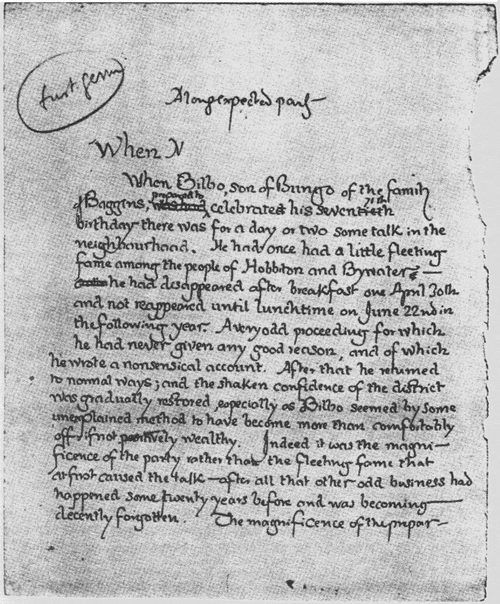 first germ
A long expected party
When N
When Bilbo, son of Bungo of the family
of Baggins, prepared to celebrate his seventieth
birthday there was for a day or two some talk in the
neighbourhood. He had once had a little fleeting
fame among the people of Hobbiton and Bywater —
he had disappeared after breakfast one April 30th
and not reappeared until lunchtime on June 22nd in
the following year. A very odd proceeding for which
he had never given any good reason, and of which
he wrote a nonsensical account. After that he returned
to normal ways; and the shaken confidence of the district
was gradually restored, especially as Bilbo seemed by some
unexplained method to have become more than comfortably
off, if not positively wealthy. Indeed it was the magni-
ficence of the party rather than the fleeting fame that
at first caused the talk — after all that other odd business had
happened some twenty years before and was becoming
decently forgotten. The magnificence of the prepar-